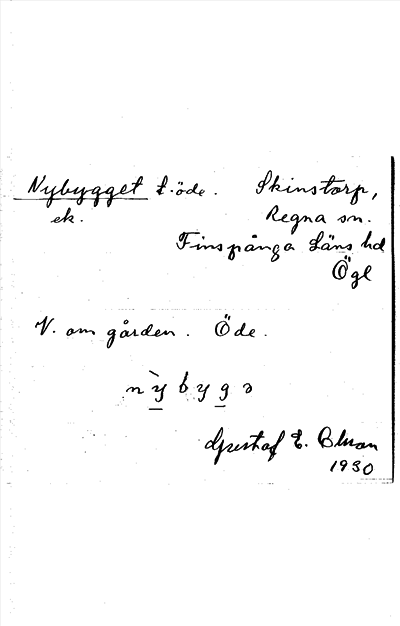 Nybygget t. öde. Skinstorp,
ek. Regna sn.
Finspånga Läns hd
Ögl
V. om gården. Öde.
nỳbygə
Gustaf E. Blman
1930